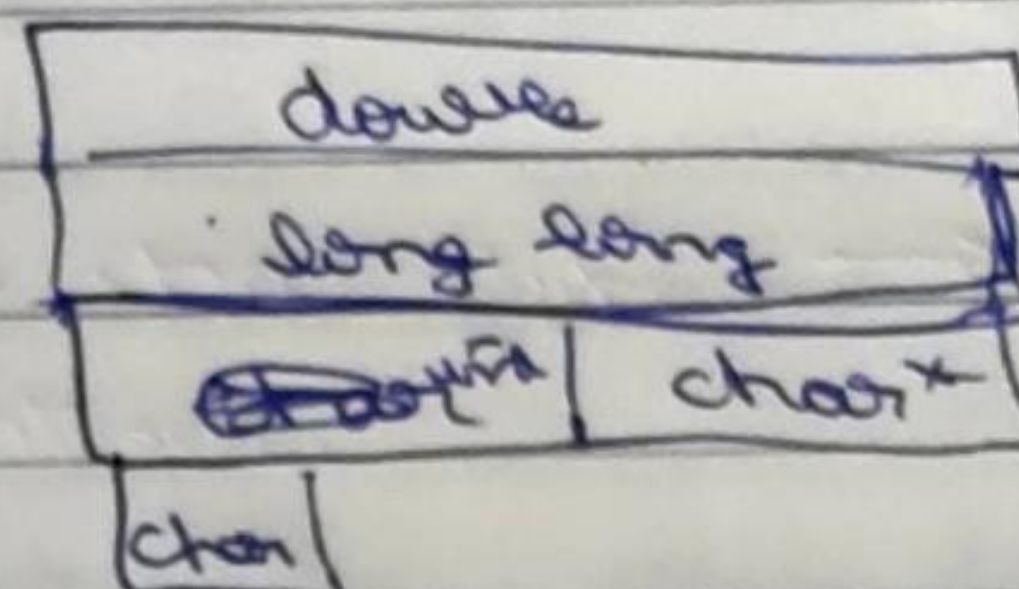 double
long long
char*
char